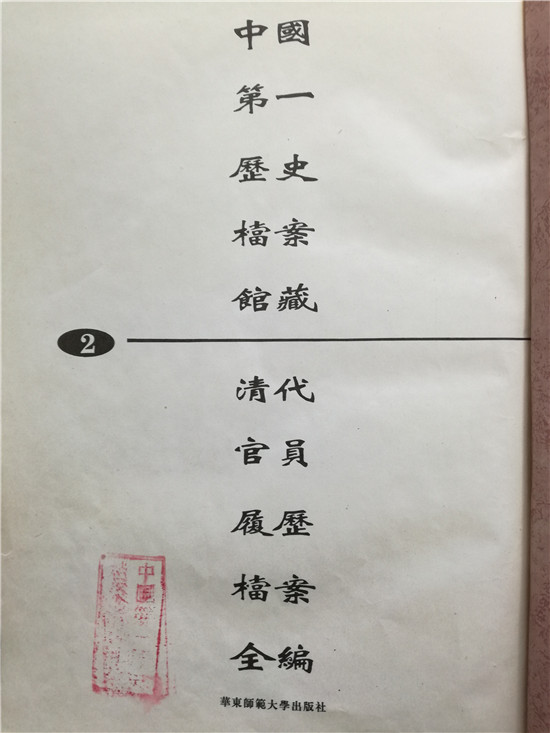 中國
第一
歷史
檔案
館藏
2
清代
官員
履歷
檔案
全編
中國第一
華東師範大學出版社